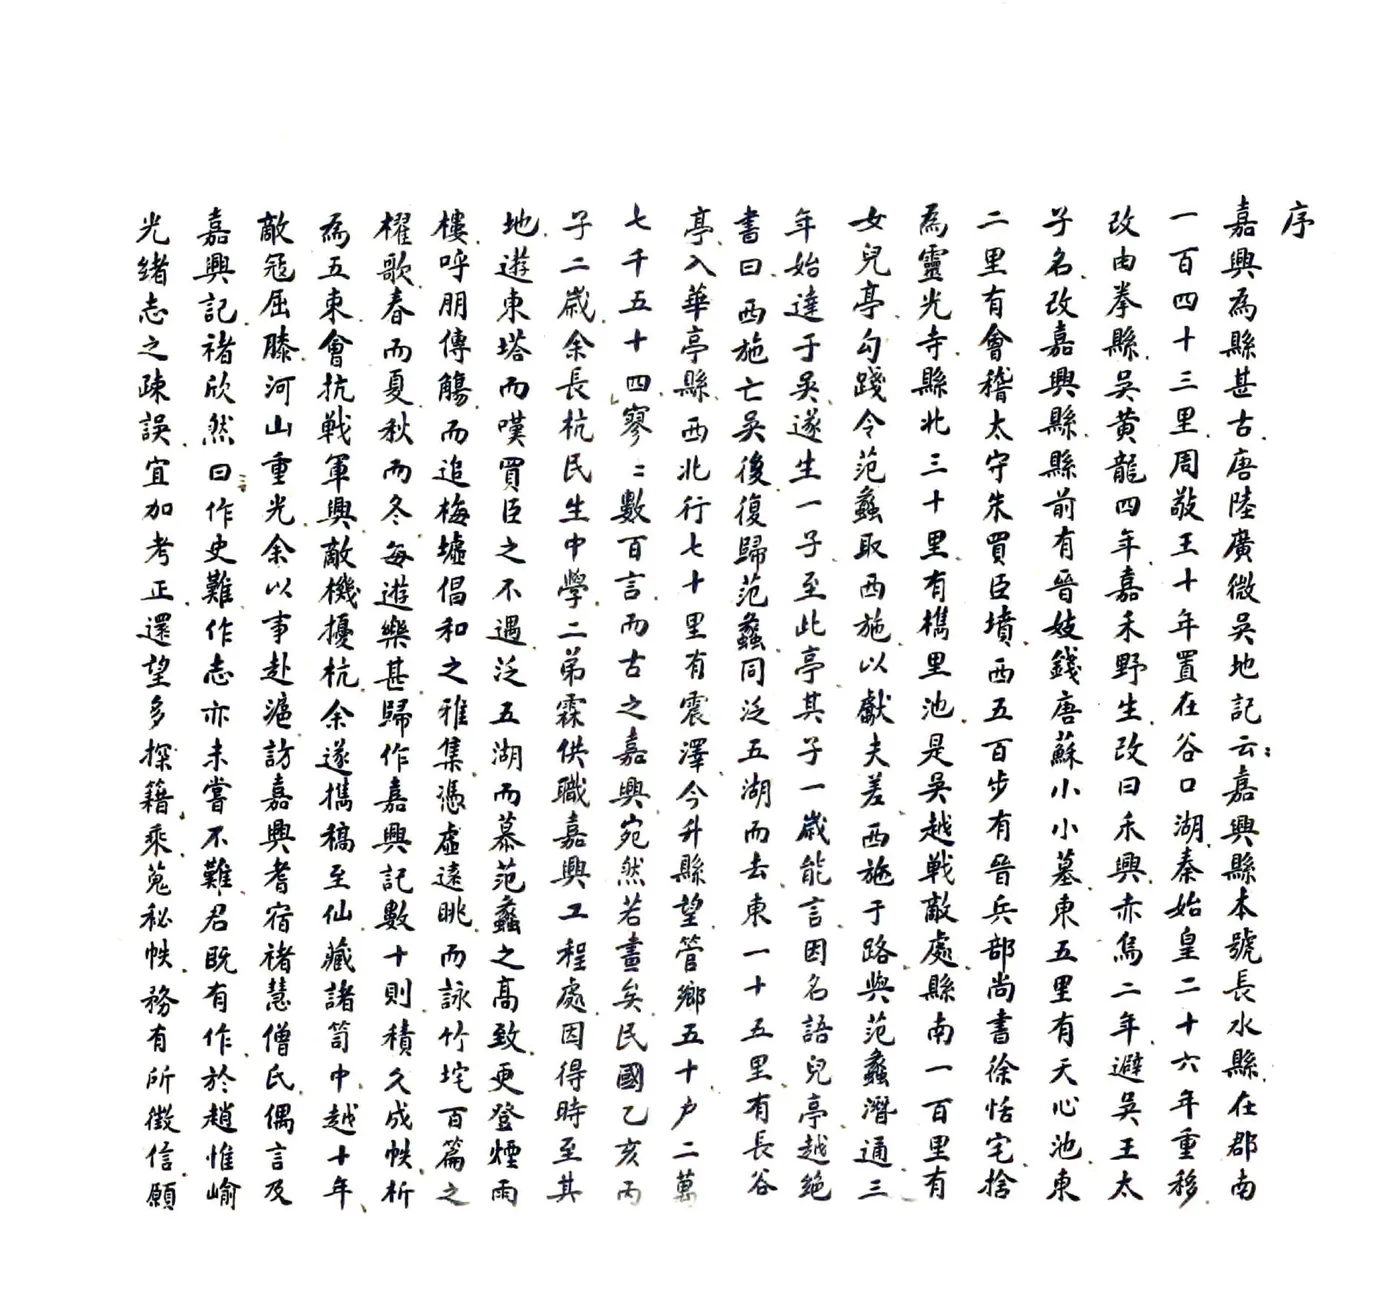 序
嘉興為縣甚古唐陸廣微吳地記云：嘉興縣本號長水縣在郡南
一百四十三里周敬王十年置在谷口湖秦始皇二十六年重移
改由拳縣吳黃龍四年嘉禾野生改曰禾興赤烏二年避吳王太
子名改嘉興縣縣前有晉妓錢唐蘇小小墓東五里有天心池東
二里有會稽太守朱買臣墳西五百步有晉兵部尚書徐恬宅捨
為靈光寺縣北三十里有檇里池是吳越戰敵處縣南一百里有
女兒亭勾踐令范蠡取西施以獻夫差西施于路與范蠡潛通三
年始達于吳遂生一子至此亭其子一歲能言因名語兒亭越絕
書曰西施亡吳後復歸范蠡同泛五湖而去東一十五里有長谷
亭入華亭縣西北行七十里有震澤今升縣望管鄉五十戶二萬
七千五十四寥〻數百言而古之嘉興宛然若畫矣民國乙亥丙
子二歲余長杭民生中學二弟霖供職嘉興工程處因得時至其
地遊東塔而嘆買臣之不遇泛五湖而慕范蠡之高致更登煙雨
樓呼朋傳觴而追梅墟倡和之雅集憑虛遠眺而詠竹垞百篇之
櫂歌春而夏秋而冬每遊樂甚歸作嘉興記數十則積久成帙析
為五束會抗戰軍興敵機擾杭余遂攜稿至仙藏諸笥中越十年
敵寇屈膝河山重光余以事赴滬訪嘉興耆宿褚慧僧氏偶言及
嘉興記褚欣然曰作史難作志亦未嘗不難君既有作於趙惟崳
光緒志之疎誤宜加考正還望多探籍乘蒐秘帙務有所徵信願